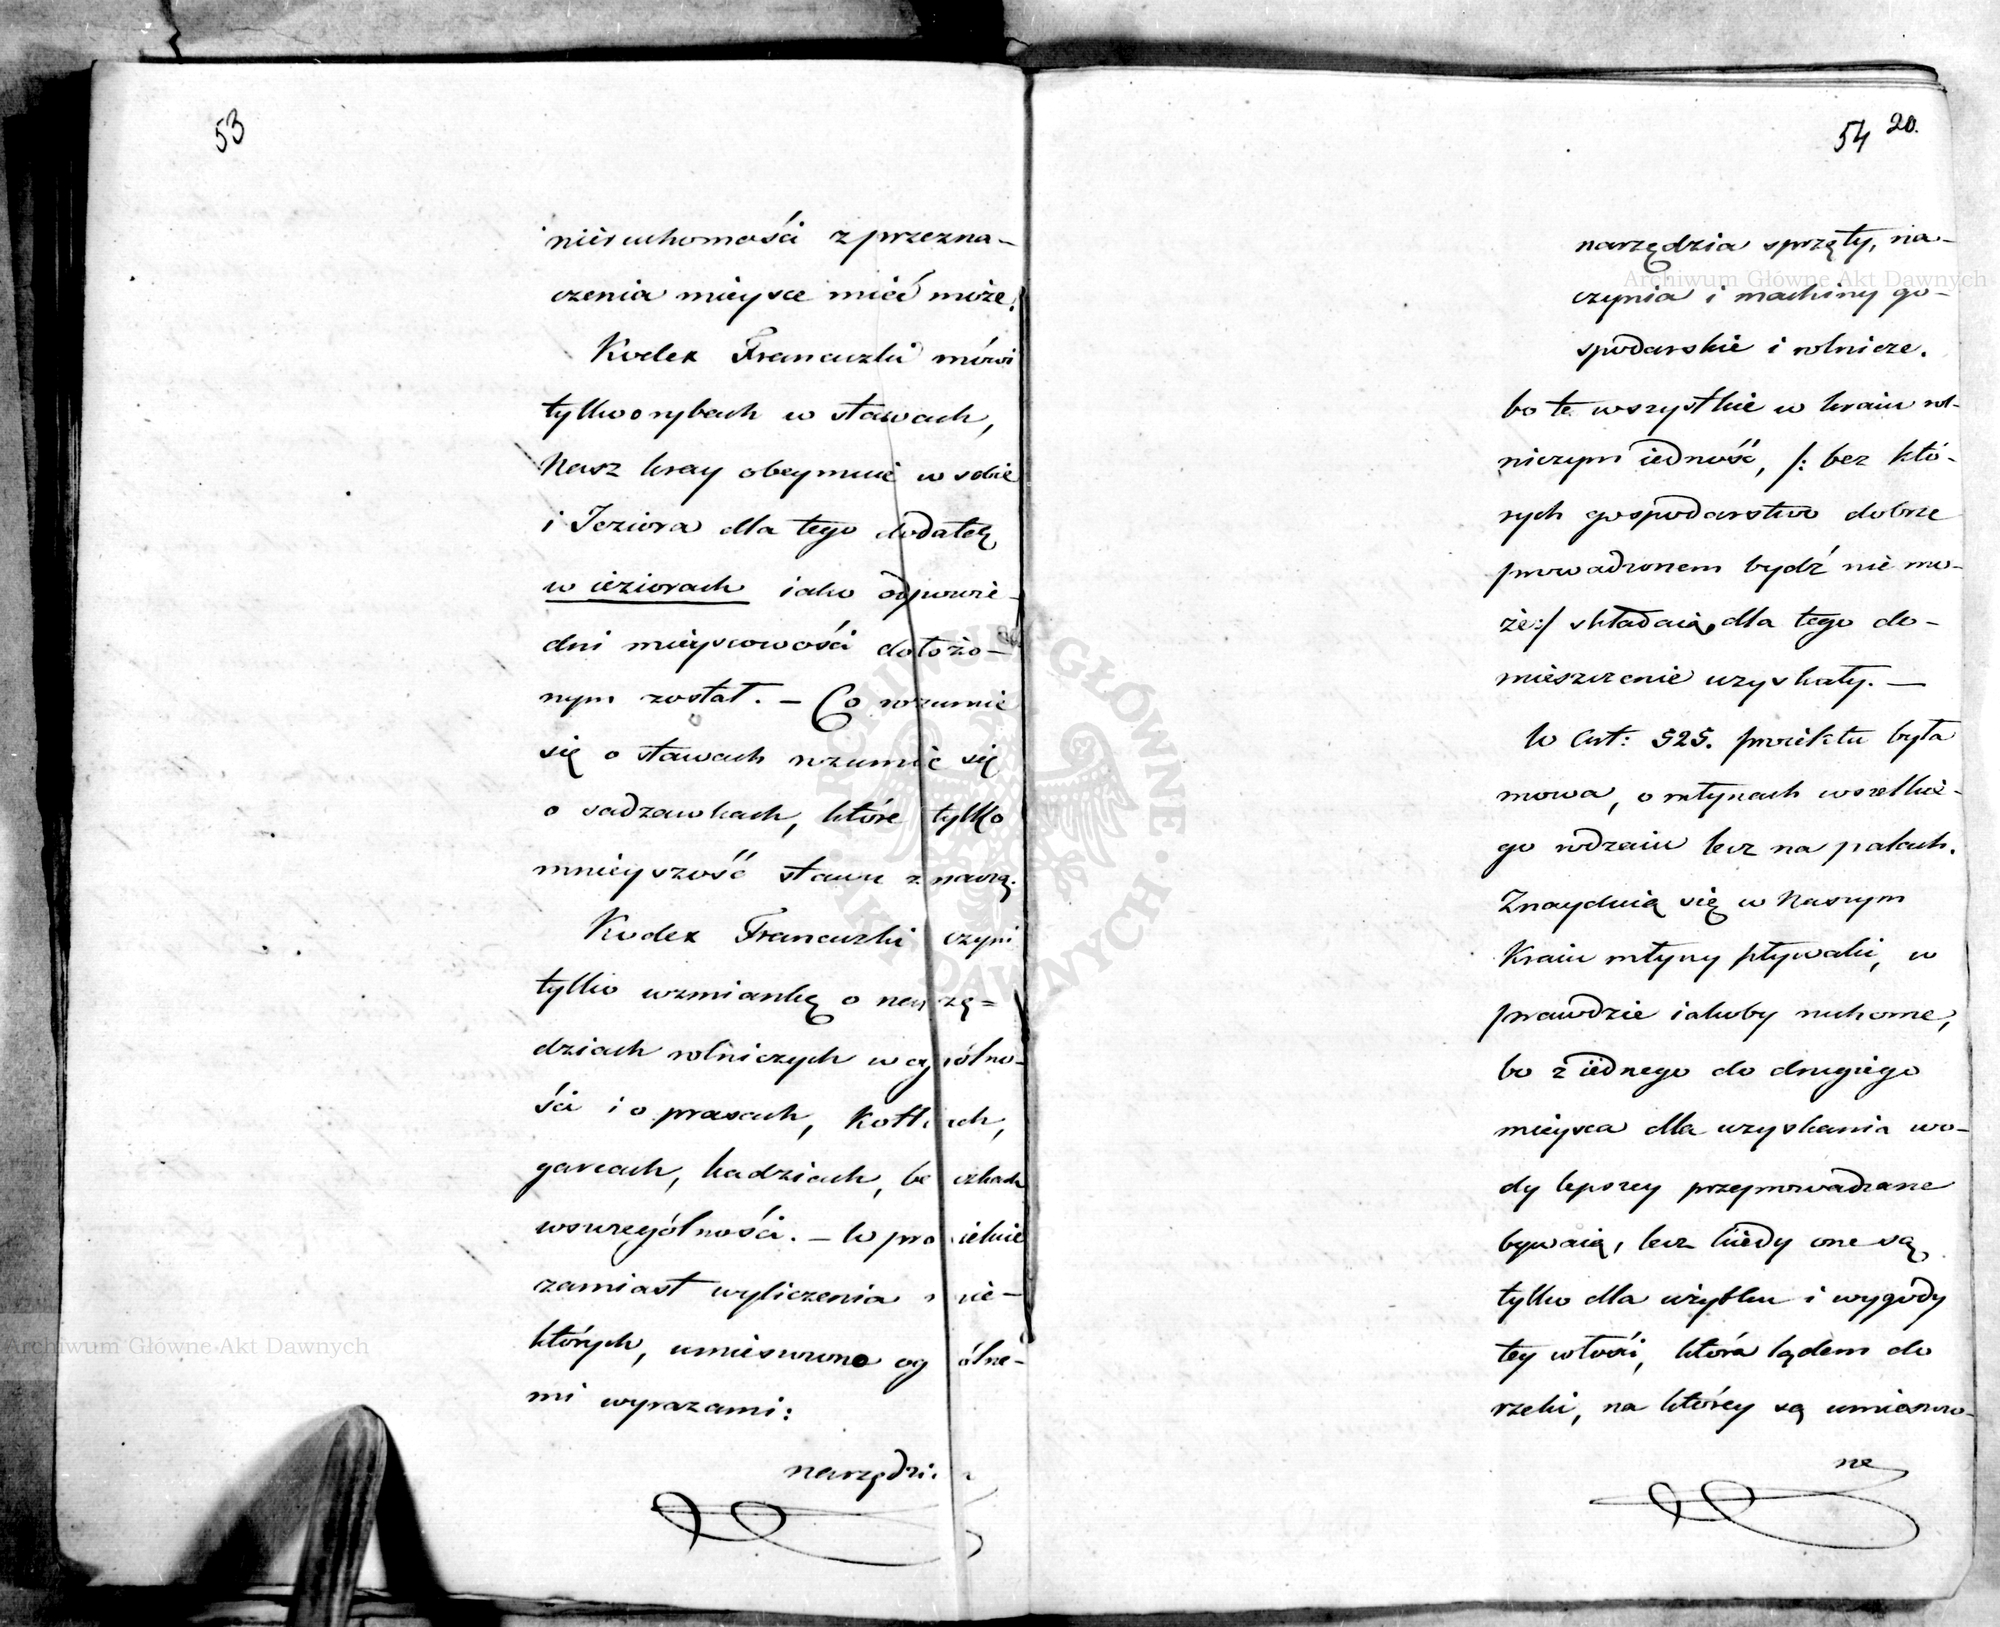 53
nieruchomości z przezna-
czenia mieysce mieć może.
Kodex Francuzki mówi
tylko o rybach w stawach,
Nasz kray obeymuie w sobie
i Jeziora dla tego dodatek
w ieziorach iako odpowie-
dni mieyscowości dołożo-
nym został. — Co rozumie
się o stawach rozumie się
o sadzawkach, które tylko
mnieyszość stawu znaczą.
Kodex Francuzki czyni
tylko wzmiankę o narzę=
dziach rolniczych w ogólno-
ści i o prasach, kotłach,
garcach, kadziach, beczkach
wszczególności. — W proiekcie
zamiast wyliczenia nie-
których, umieszczono ogólne-
mi wyrazami:
narzędzia
54 20.
narzędzia sprzęty, na-
czynia i machiny go-
spodarskie i rolnicze.
bo te wszystkie w kraiu rol-
niczym iedność, /: bez któ-
rych gospodarstwo dobrze
prowadzonem bydź nie mo-
że:/ składaią, dla tego do-
mieszczenie uzyskały. —
W Art: 525. proiektu była
mowa, o młynach wszelkie-
go rodzaiu lecz na palach.
Znayduią się w Naszym
Kraiu młyny pływaki, w
prawdzie iakoby ruchome,
bo z iednego do drugiego
mieysca dla uzyskania wo-
dy lepszey przeprowadzane
bywaią, lecz kiedy one są
tylko dla użytku i wygody
tey włości, która lądem do
rzeki, na którey są umieszczo-
ne
Archiwum Główne Akt Dawnych
Archiwum Główne Akt Dawnych
ARCHIWUM GŁÓWNE · AKT DAWNYCH ·